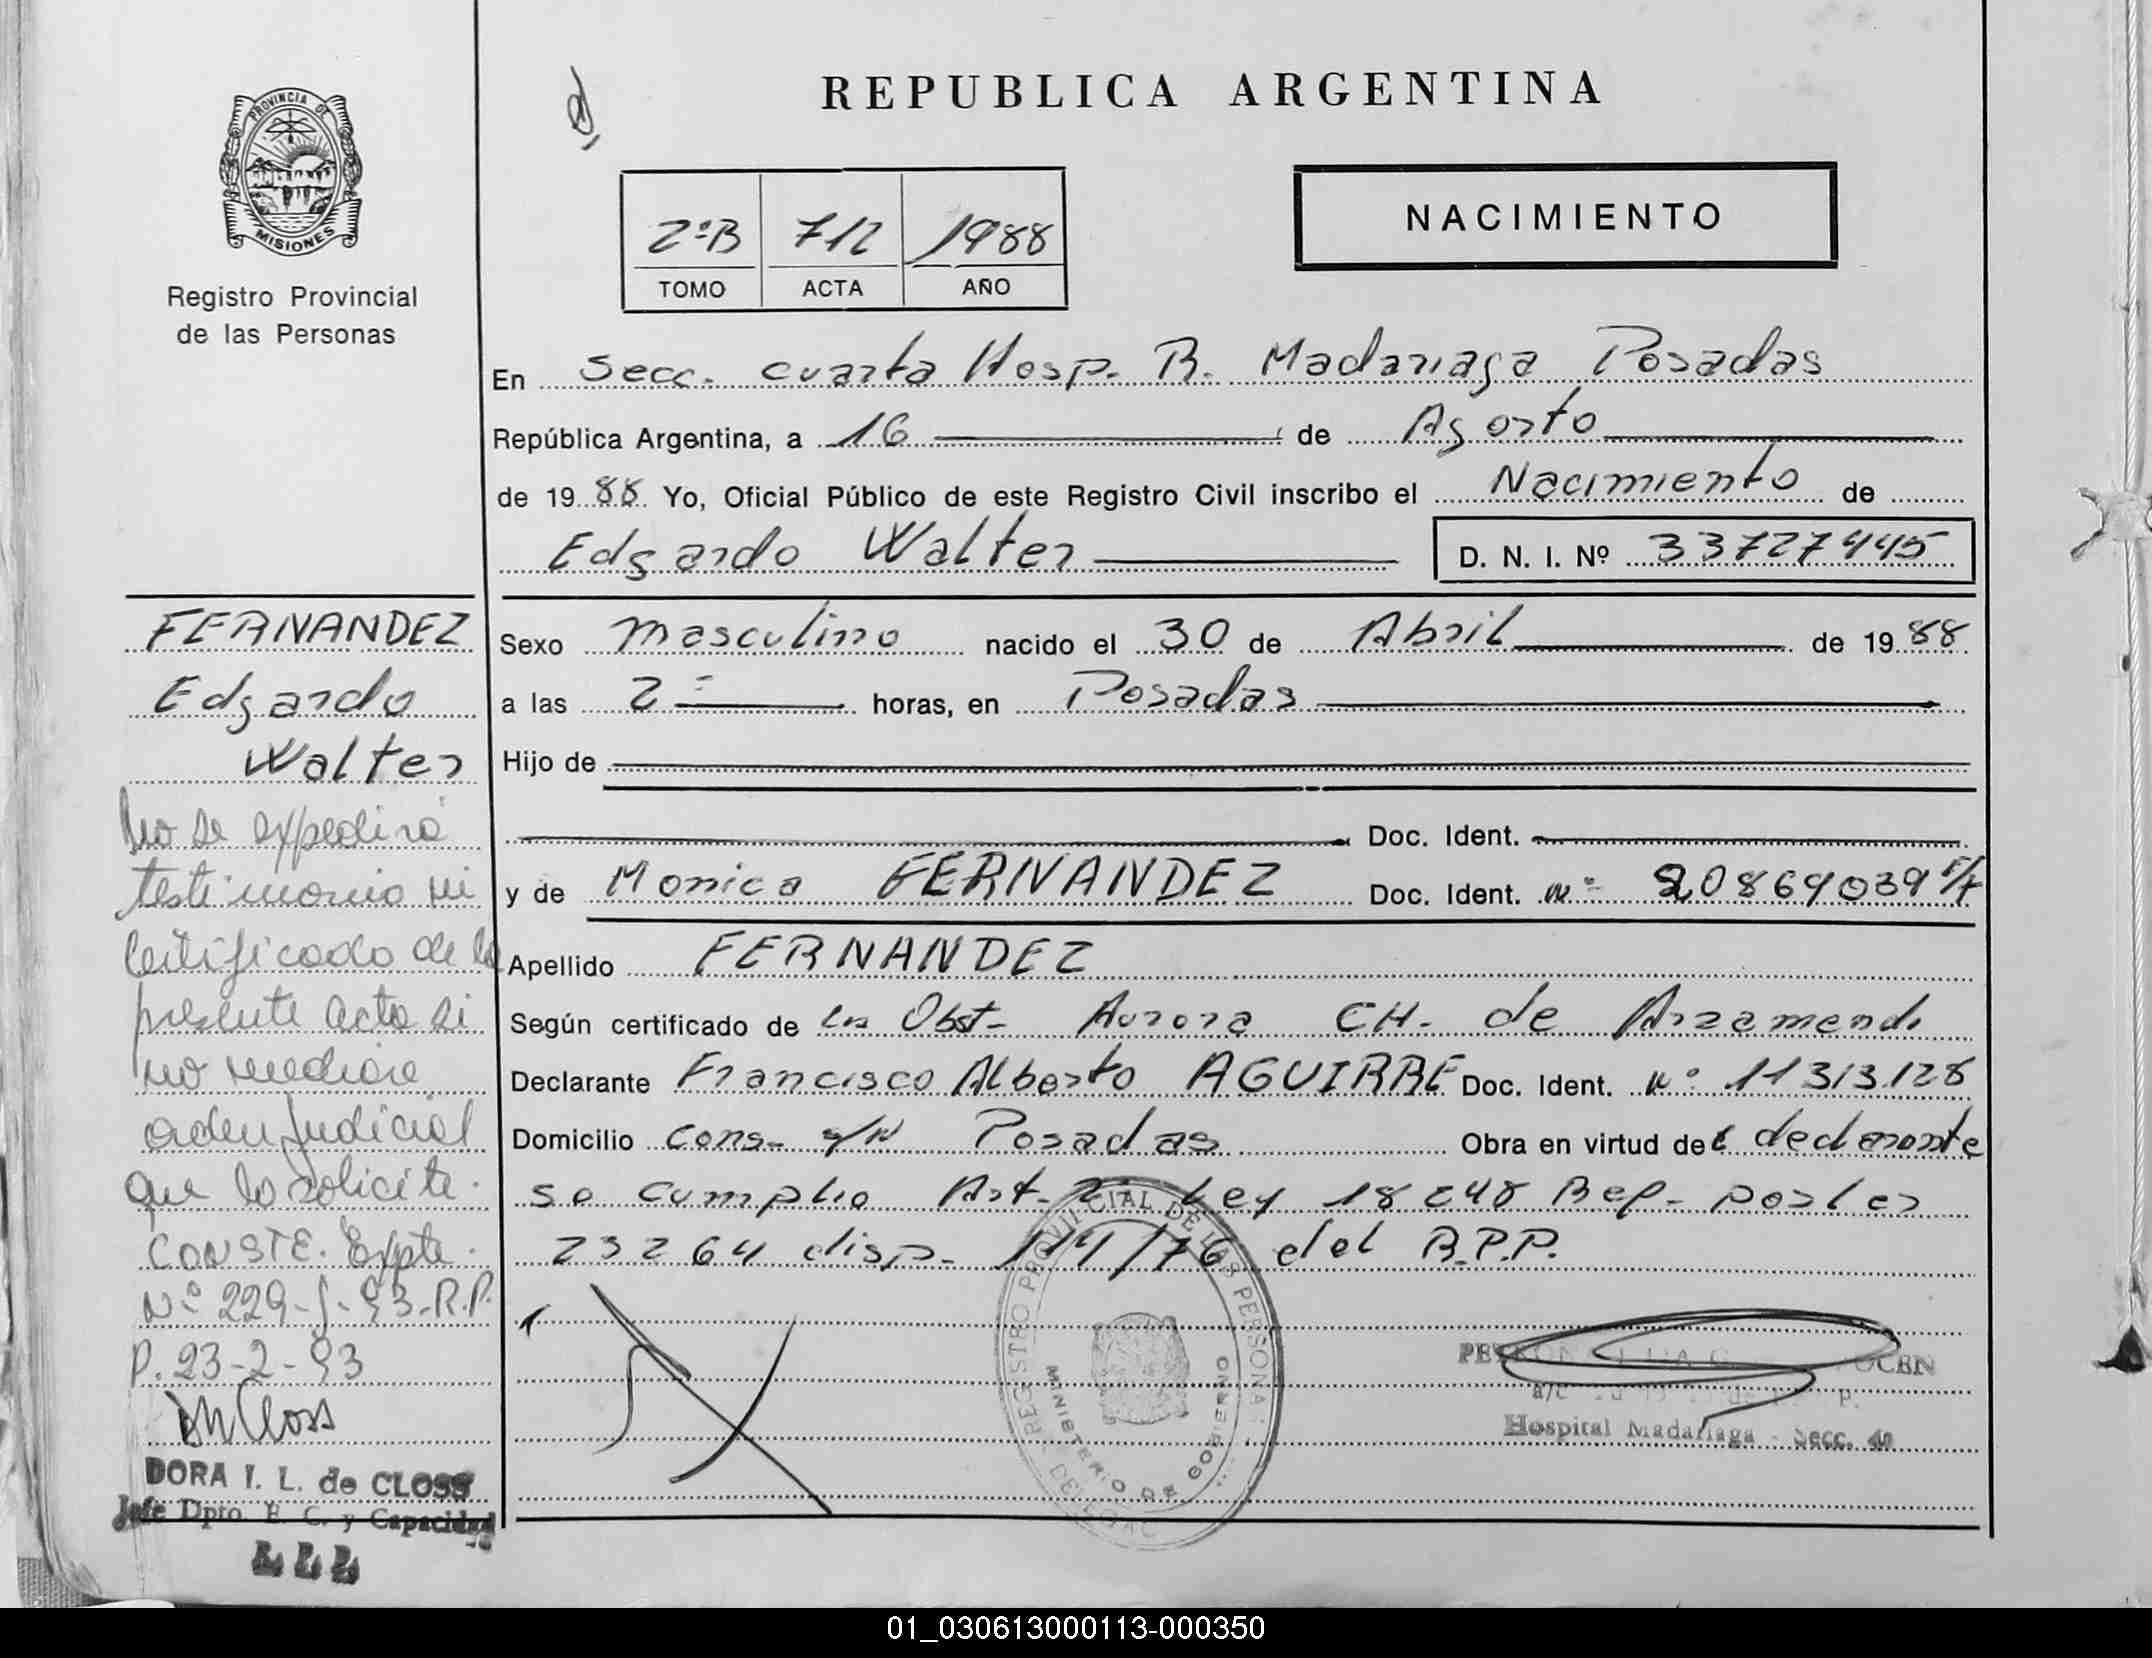 REPUBLICA ARGENTINA
PROVINCIA DE MISIONES
Registro Provincial
de las Personas
2ºB 712 1988
TOMO ACTA AÑO
NACIMIENTO
En Secc. cuarta Hosp. R. Madariaga Posadas
República Argentina, a 16 de Agosto
de 1988 Yo, Oficial Público de este Registro Civil inscribo el Nacimiento de
Edgardo Walter D. N. I. Nº 33727445
Sexo masculino nacido el 30 de Abril de 1988
a las 2 horas, en Posadas
Hijo de
Doc. Ident.
y de Monica FERNANDEZ Doc. Ident. Nº 20869039
Apellido FERNANDEZ
Según certificado de la Obst. Aurora CH. de Arzamendi
Declarante Francisco Alberto AGUIRRE Doc. Ident. Nº 11313.128
Domicilio Cons. s/N Posadas Obra en virtud del declarante
se cumplio Art. 2º Ley 18248 Rep.
23264 disp. 114/76 del R.P.P.
FERNANDEZ
Edgardo
Walter
No se expedirá
testimonio ni
certificado de la
presente acta si
no mediare
orden judicial
que lo solicite.
CONSTE. Expte.
Nº 229-J-93-R.P.
P. 23-2-93
DORA I. L. de CLOSS
Jefe Dpto. E. C. y Capacidad
REGISTRO PROVINCIAL DE LAS PERSONAS
MINISTERIO DE GOBIERNO
Hospital Madariaga - Secc. 4a
01_030613000113-000350